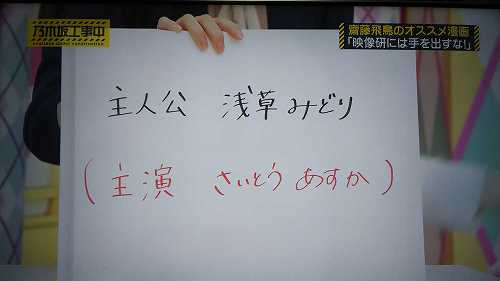 乃木坂工事中
齋藤飛鳥のオススメ漫画
「映像研には手を出すな!」
主人公 浅草みどり
(主演 さいとう あすか)